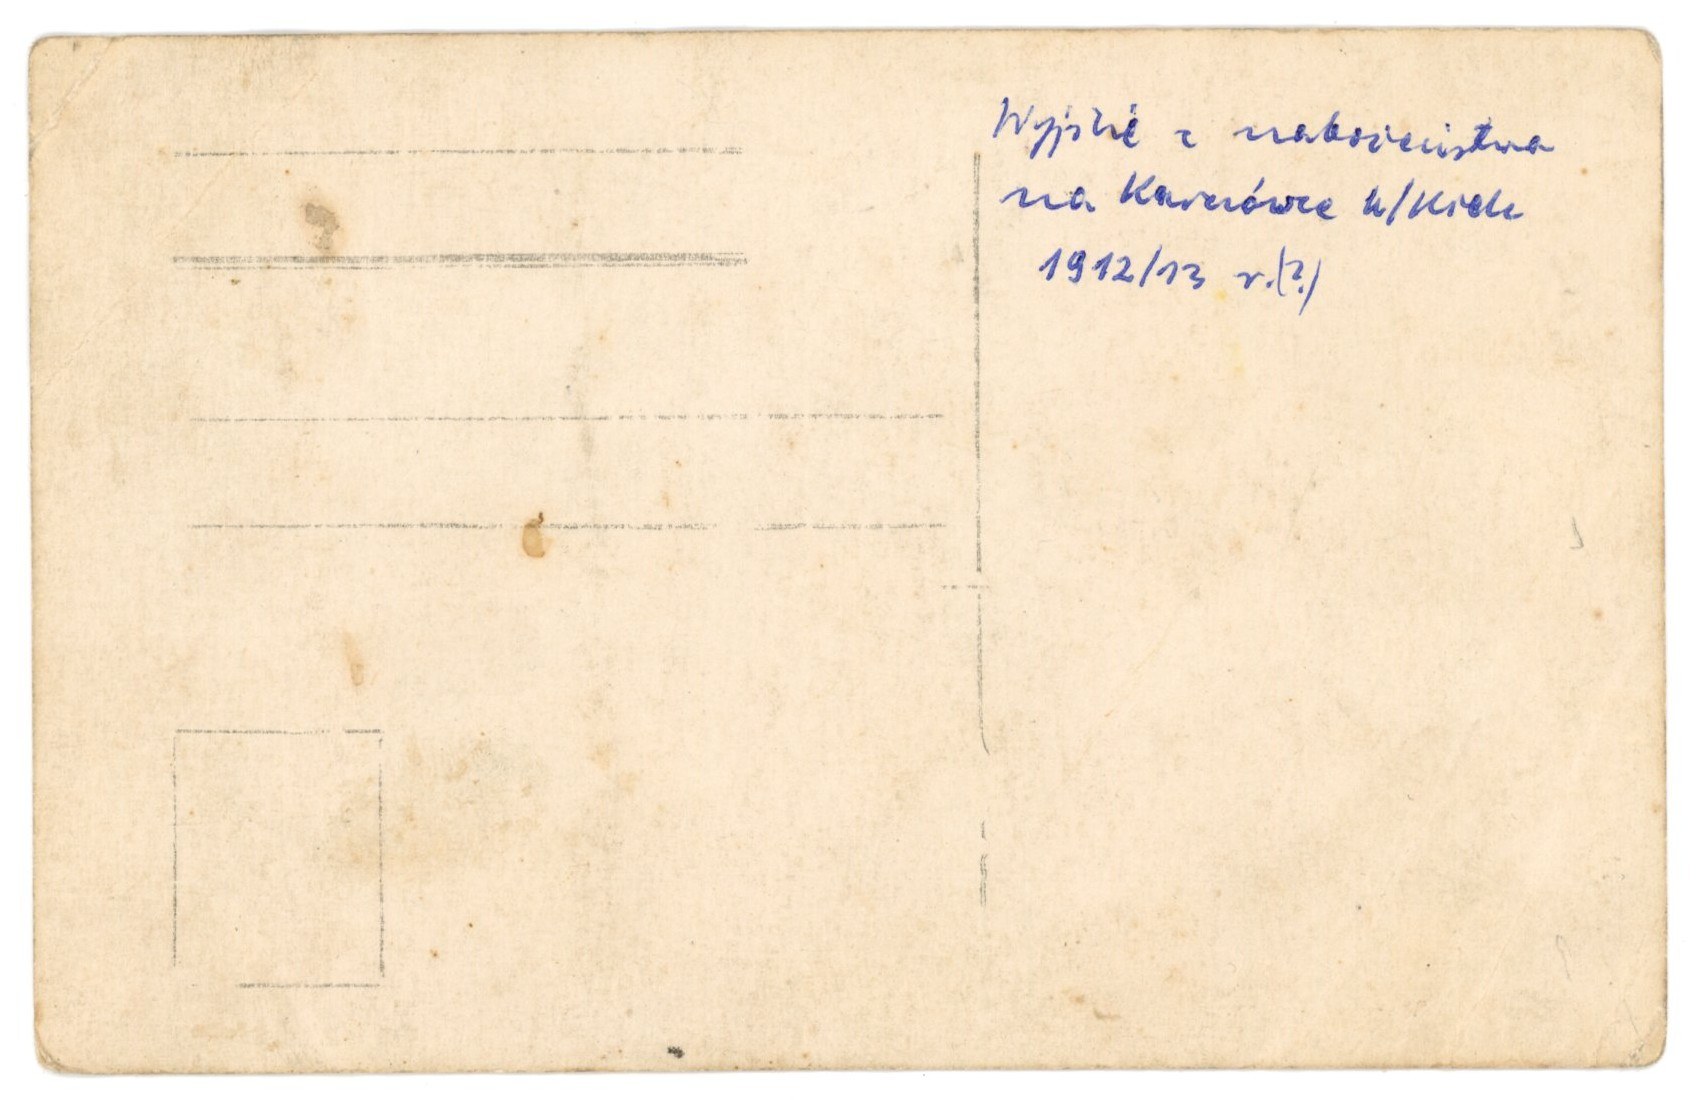 Wyjście z nabożeństwa
na Karczówce k/Kielc
1912/13 r.(?)